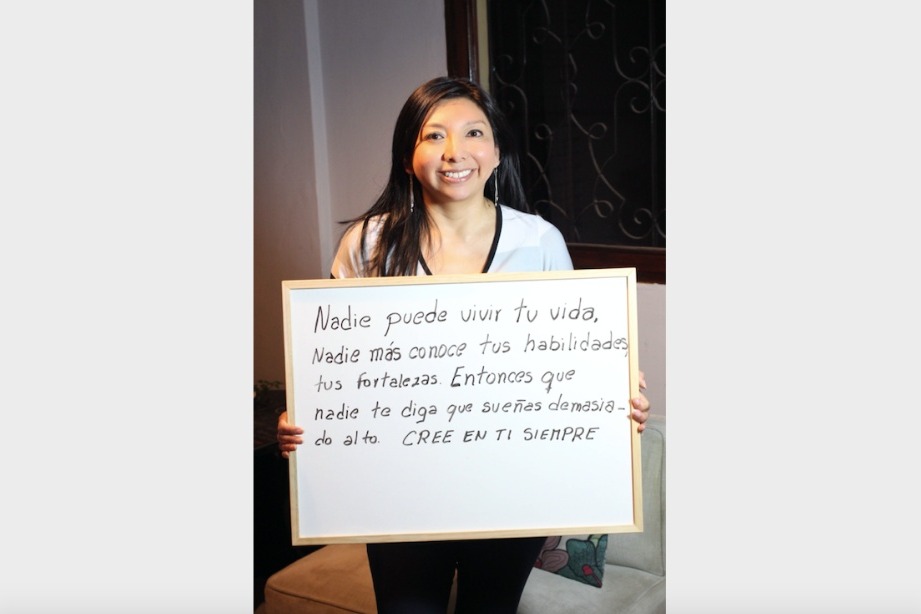 Nadie puede vivir tu vida,
Nadie más conoce tus habilidades,
tus fortalezas. Entonces que
nadie te diga que sueñas demasia-
do alto. CREE EN TI SIEMPRE